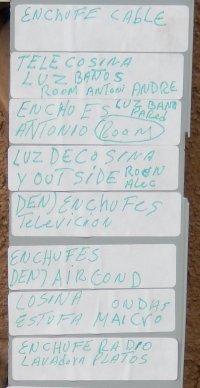 ENCHUFE CABLE
TELECOSINA
LUZ BAÑOS
ROOM ANTONI ANDRE
ENCHOES LUZ BANO PARED
ANTONIO ROOM
LUZ DECOSINA
Y OUTSIDE ROON ALEC
DEN) ENCHUFES
TELEVICION
ENCHUFES
DEN) AIR COND
COSINA ONDAS
ESTUFA MAICRO
ENCHUFE RADIO
LAVADORA PLATOS